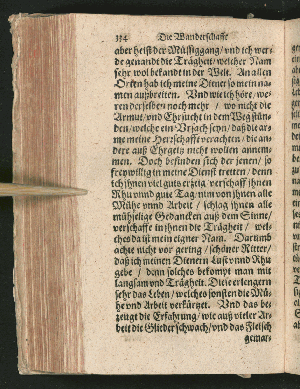 134 Die Wanderschafft
aber heist der Müssiggang/ vnd ich wer-
de genandt die Trägheit/ welcher Nam
sehr wol bekandt in der Welt. An allen
Orten hab ich meine Diener so mein na-
men außbreiten. Vnd wie ich höre, we-
ren derselben noch mehr / wo nicht die
Armut/ vnd Ehrsucht in dem Weg stün-
den/ welche ein Vrsach seyn/ daß die ar-
me meine Herschafft verachten/ die an-
dere auß Ehrgeitz nicht wollen anneme
men. Doch befinden sich der jenen/ so
freywillig in meine Dienst tretten / denn
ich ihnen viel guts erzeig/ verschaff ihnen
Rhu vnd gute Tag, nim von ihnen alle
Mühe vnnd Arbeit / schlag ihnen alle
mühselige Gedancken auß dem Sinne/
verschaffe in ihnen die Trägheit / wel-
ches da ist mein eigner Nam. Darumb
achte nicht vor gering / schöner Ritter/
daß ich meinen Dienern Lust vnnd Rhu
gebe / denn solches bekompt man mit
langsam vnd Trägheit. Die erlengern
sehr das Leben/ welches sonsten die Mü-
he vnd Arbeit verkürtzt. Vnd das be-
zeugt die Erfahrung/ wie auß vieler Ar-
beit die Glieder schwach/ vnd das Fleisch
gemar-